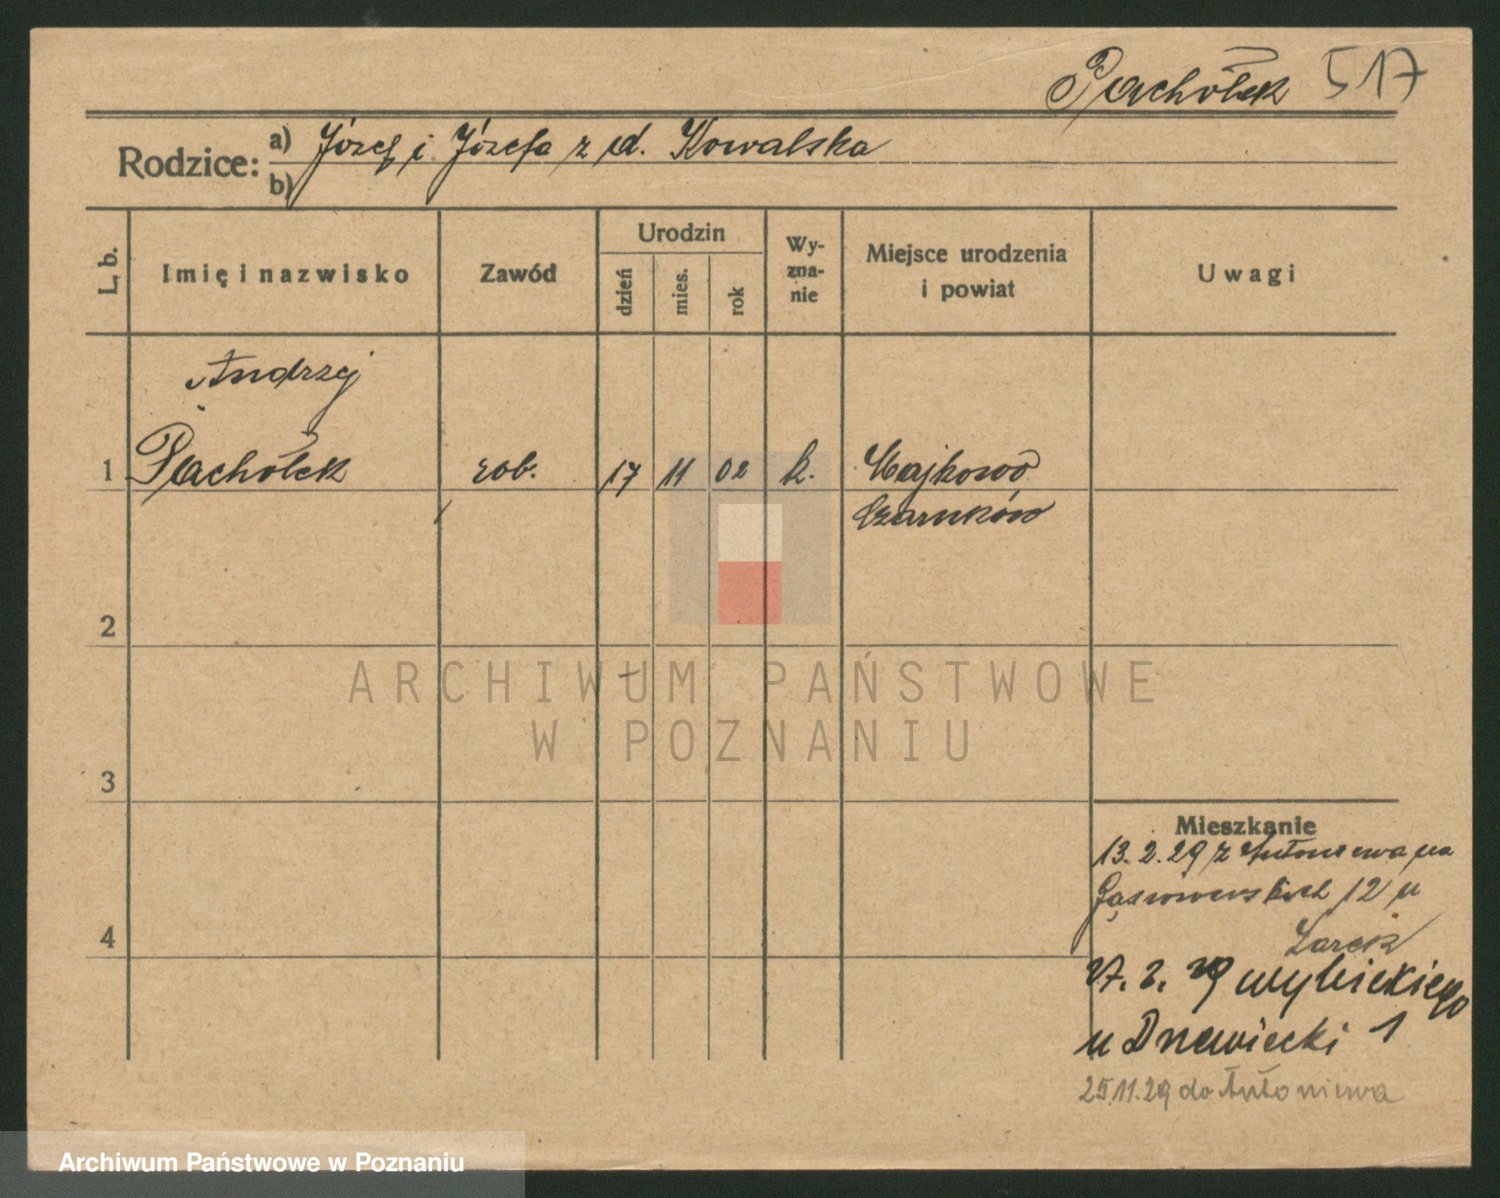 Pachołek 517
Rodzice: a) Józef i Józefa z d. Kowalska
b)
L. b.
Imię i nazwisko
Zawód
Urodzin
dzień
mies.
rok
Wy-
zna-
nie
Miejsce urodzenia
i powiat
Uwagi
Andrzej
1 Pachołek rob. 17 11 02 k.
Czarnków
2
3
4
Mieszkanie
13.2.29 z Antoniewa na
12 u
Wybickiego
u 1
25.11.29 do Antoniewa
ARCHIWUM PAŃSTWOWE
W POZNANIU
Archiwum Państwowe w Poznaniu